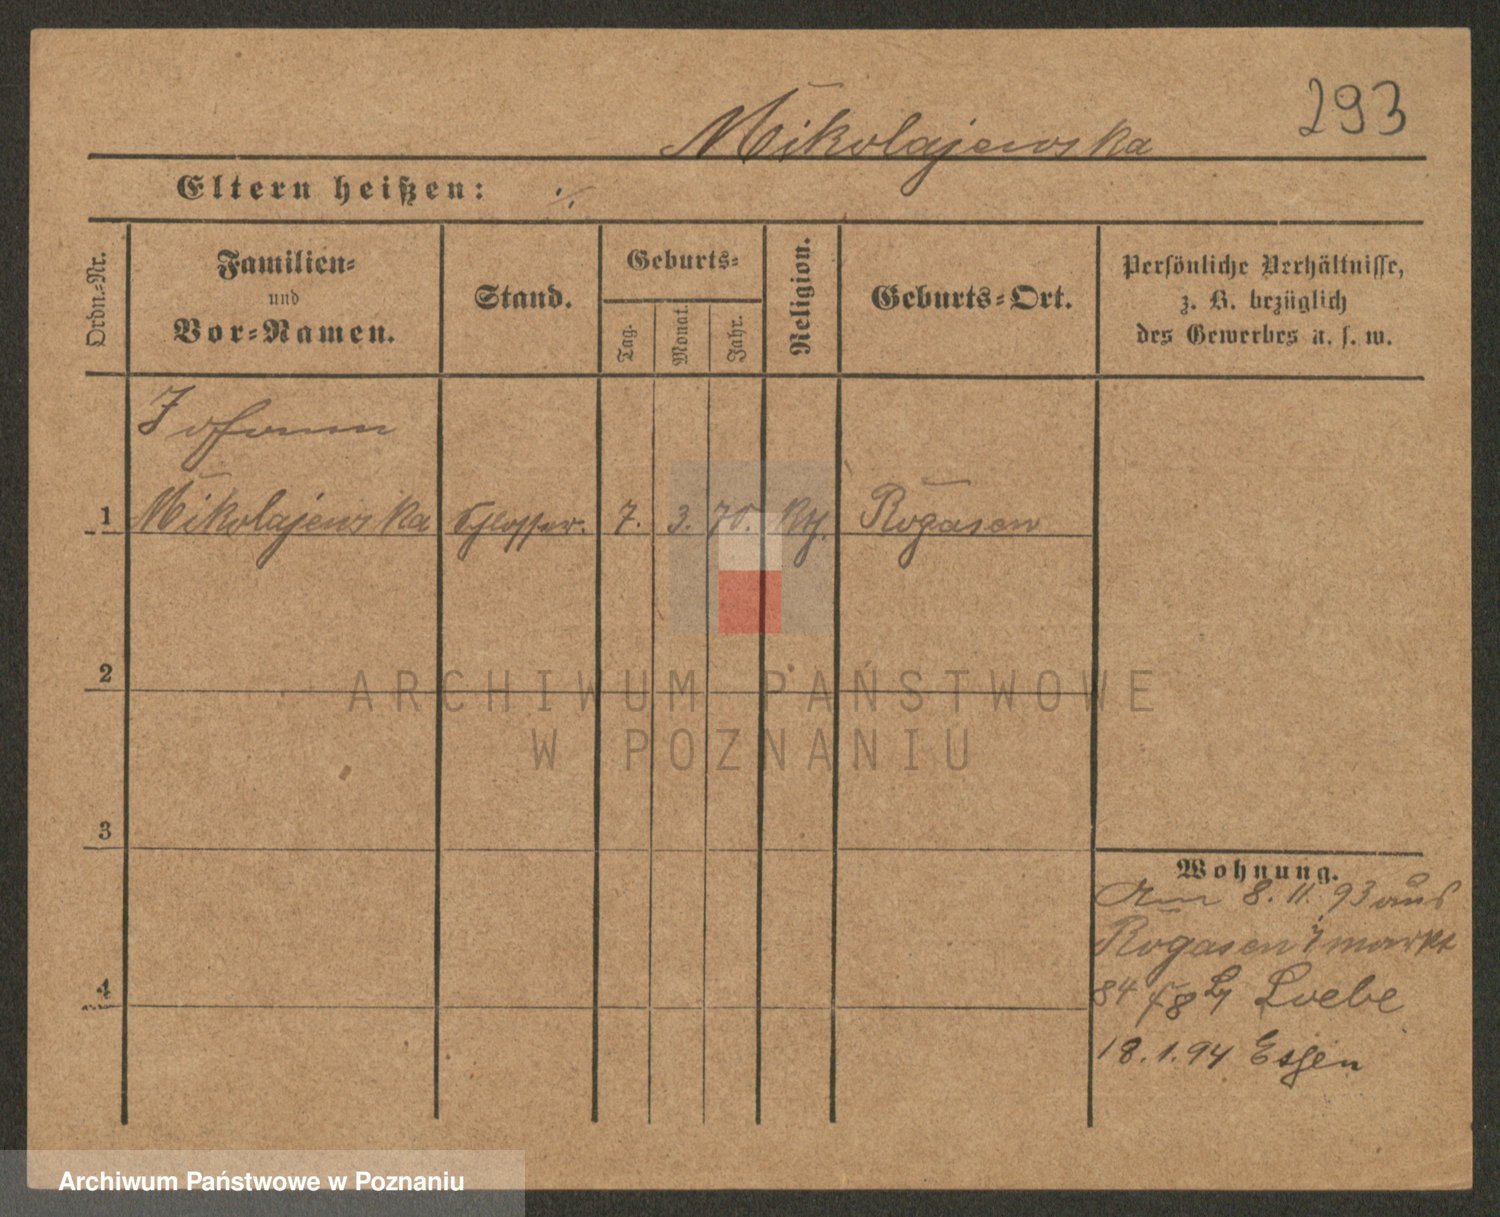 293
Mikolajewska
Eltern heißen: ./.
Ordn.-Nr.
Familien-
und
Vor-Namen.
Stand.
Geburts-
Tag.
Monat.
Jahr.
Religion.
Geburts-Ort.
Persönliche Verhältnisse,
z. B. bezüglich
des Gewerbes u. s. w.
Johann
1 Mikolajewska Schlosser. 7. 3. 70. Kth. Rogasen
2
3
4
Wohnung.
Am 8. 11. 93 aus
Rogasen markt
84 Loebe
18.1.94 Essen
ARCHIWUM PAŃSTWOWE
W POZNANIU
Archiwum Państwowe w Poznaniu